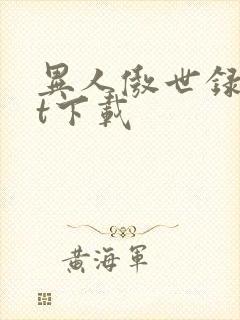 異人傲世録
t下載
黄海軍